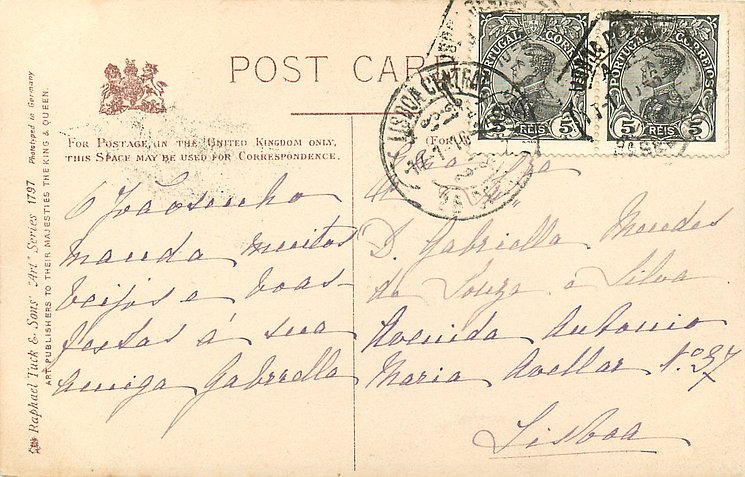 POST CARD
FOR POSTAGE IN THE UNITED KINGDOM ONLY,
THIS SPACE MAY BE USED FOR CORRESPONDENCE.
(For
PORTUGAL CORREIO
5 REIS 5
PORTUGAL CORREIO
5 REIS 5
LISBOA CENTRAL
O Joãosinho
manda muitos
beijos e boas-
festas á sua
amiga Gabriella
D. Gabriella Mendes
de Souza e Silva
Avenida Antonio
Maria Avellar Nº 37
Lisboa
Raphael Tuck & Sons' "Art" Series 1797 Phototyped in Germany
ART PUBLISHERS TO THEIR MAJESTIES THE KING & QUEEN.